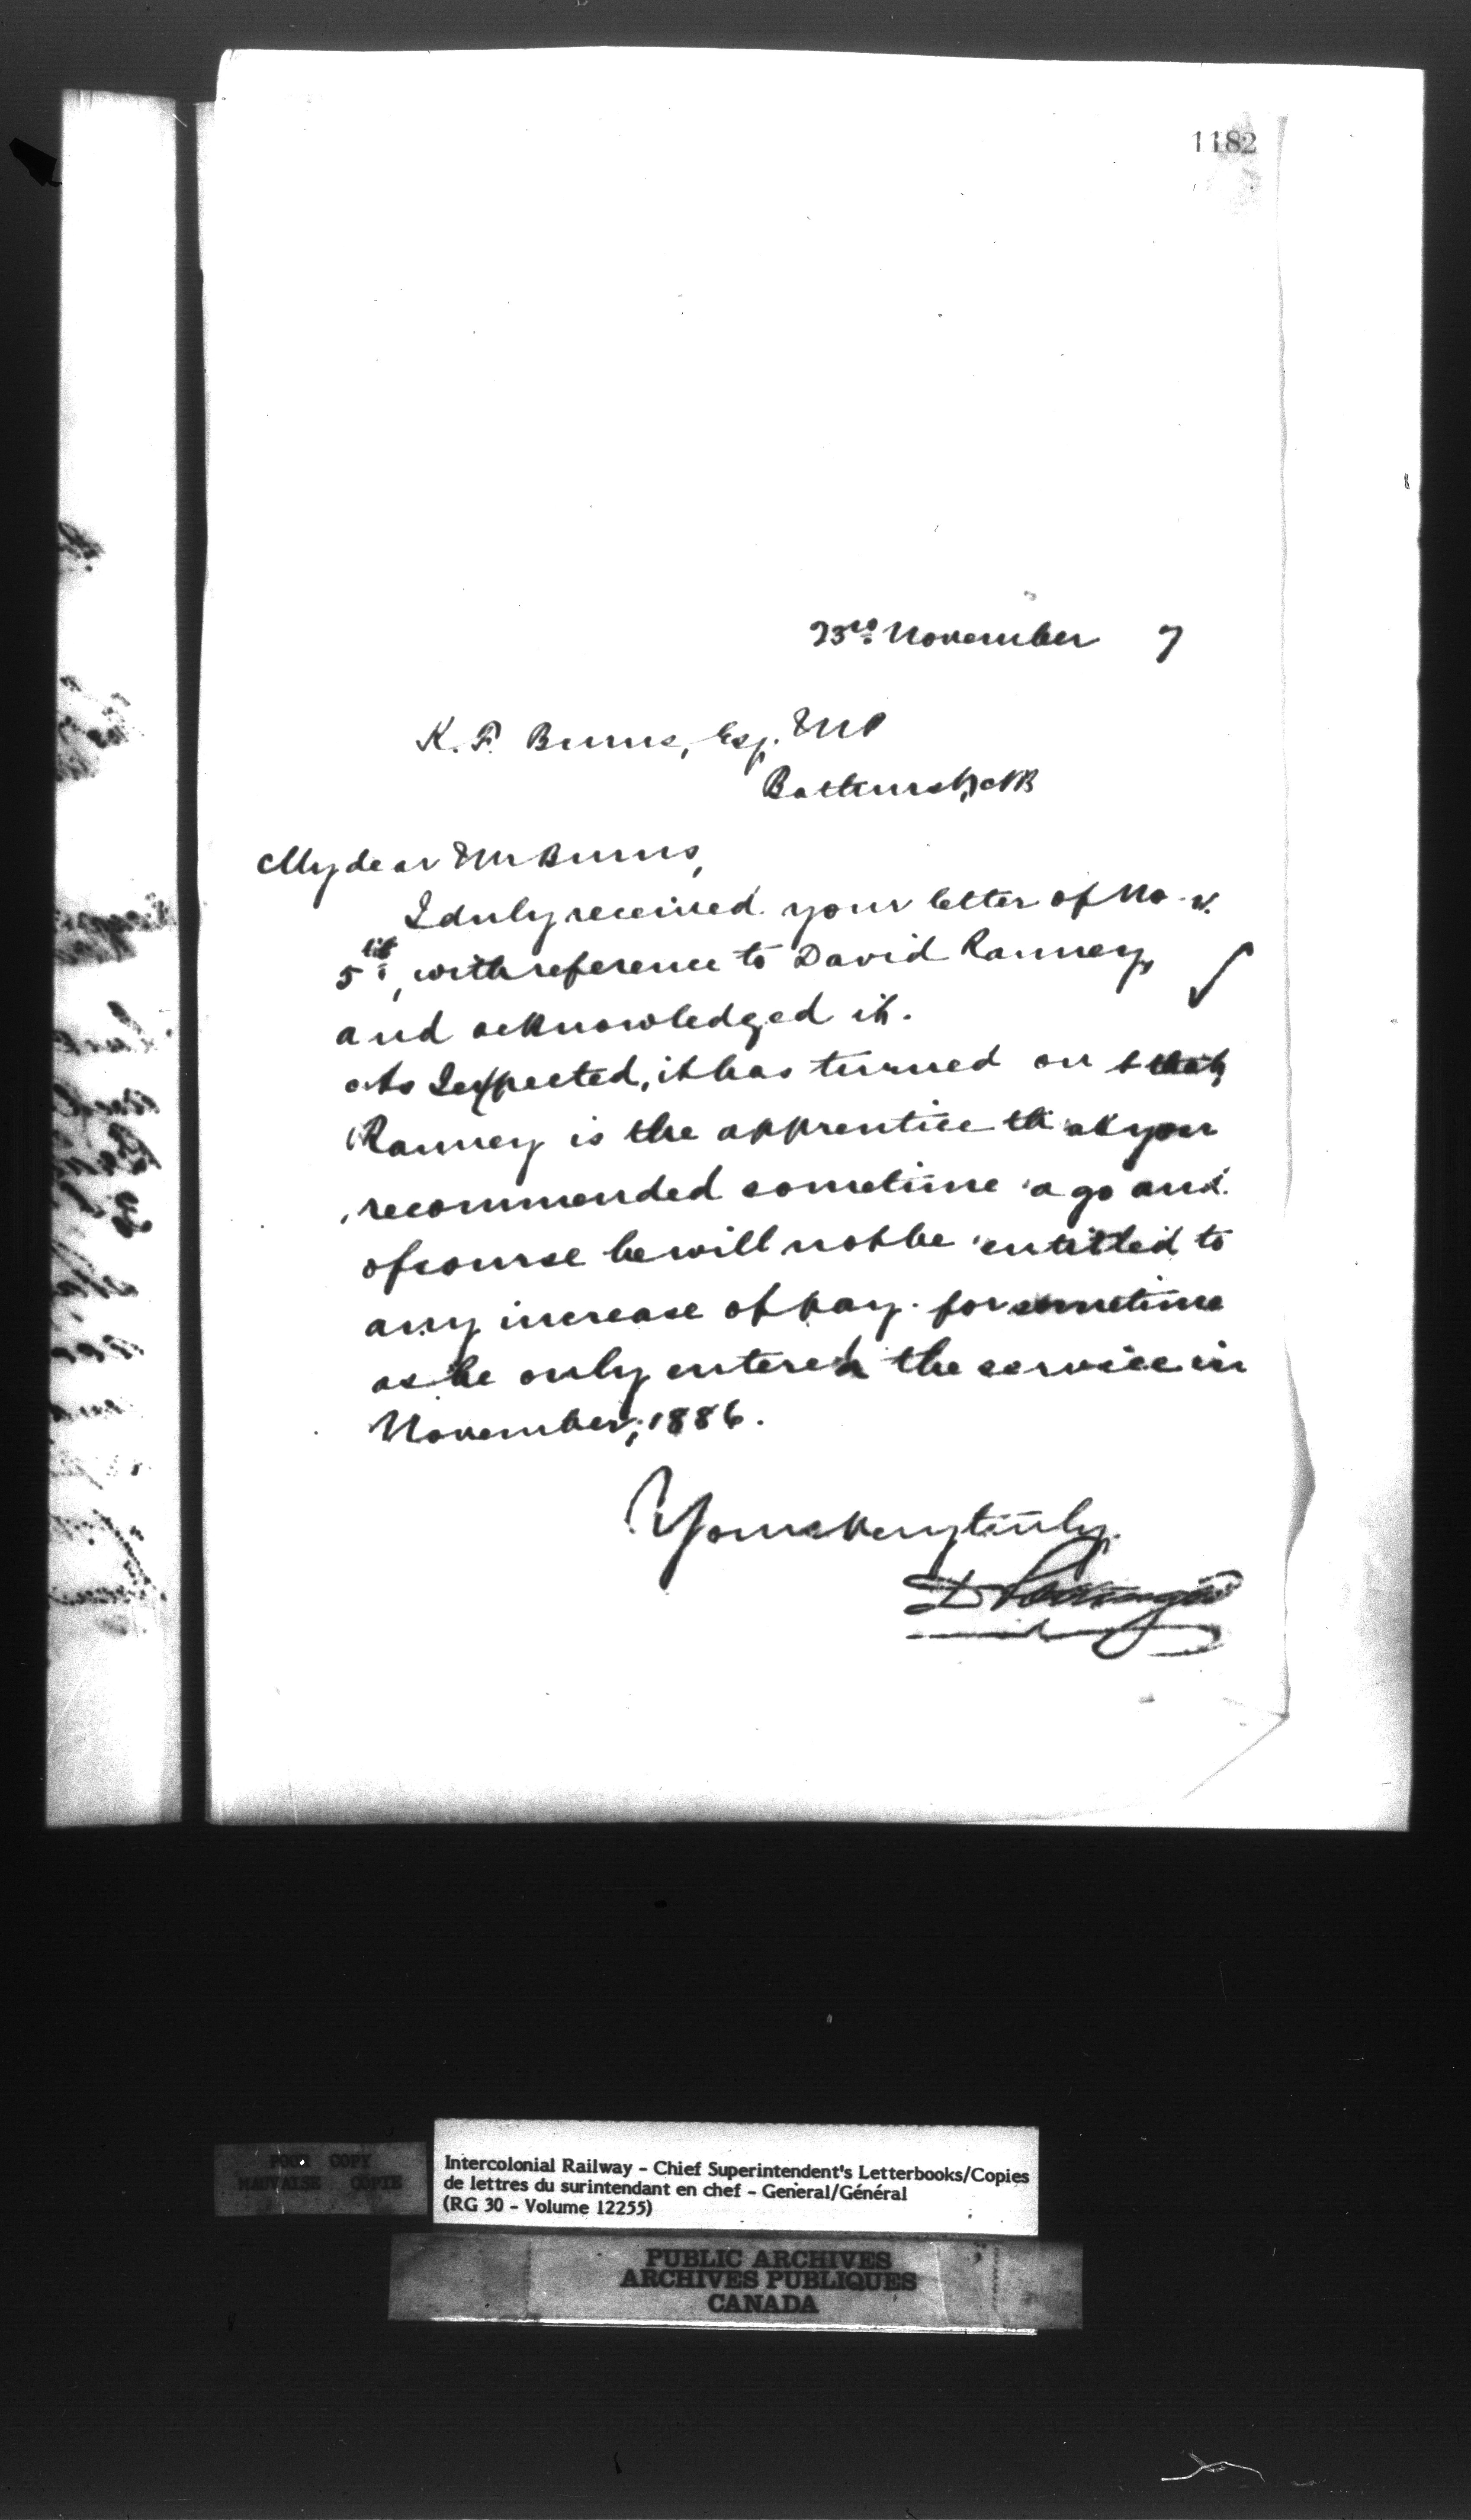 1182
23rd November 7
K. F. Burns, Esq. MP
Bathurst, NB
My dear Mr Burns,
I duly received your letter of Nov.
5th, with reference to David Ranney,
and acknowledged it.
As I expected, it has turned out that
Ranney is the apprentice that you
recommended sometime ago and
of course he will not be entitled to
any increase of pay for sometime
as he only entered the service in
November, 1886.
Yours very truly,
D Pottinger
POOR COPY
MAUVAISE COPIE
Intercolonial Railway - Chief Superintendent's Letterbooks/Copies
de lettres du surintendant en chef - General/Général
(RG 30 - Volume 12255)
PUBLIC ARCHIVES
ARCHIVES PUBLIQUES
CANADA